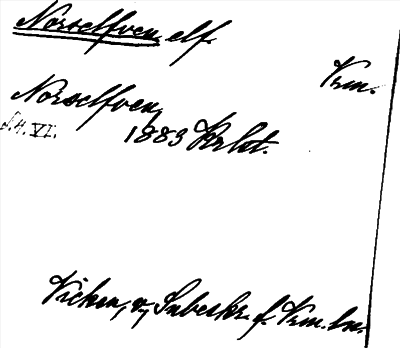 Norselfven, elf.
Vrm.
Norselfven,
S.H. VI. 1883 Krbt.
Vicken, v. Subeskr. f. Vrm. ln.